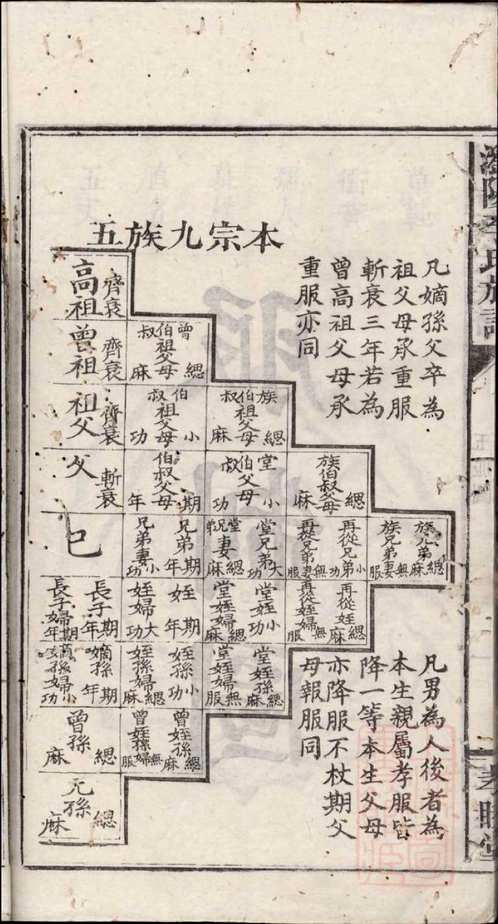 本宗九族五
凡嫡孫父卒為
祖父母承重服
斬衰三年若為
曾高祖父母承
重服亦同
高祖 齊衰
曾伯叔祖父母 緦麻
曾祖 齊衰
族伯叔祖父母 緦麻
伯叔祖父母 小功
祖父 齊衰
族伯叔父母 緦麻
堂伯叔父母 小功
伯叔父母 期年
父 斬衰
族兄弟 緦麻
族兄弟妻 無服
再從兄弟 小功
再從兄弟妻 無服
堂兄弟 大功
堂兄弟妻 緦麻
兄弟 期年
兄弟妻 小功
己
再從姪 緦麻
再從姪婦 無服
堂姪 小功
堂姪婦 緦麻
姪 期年
姪婦 大功
長子 期年
長子婦 期年
堂姪孫 緦麻
堂姪孫婦 無服
姪孫 小功
姪孫婦 緦麻
嫡孫 期年
嫡孫婦 小功
曾姪孫 緦麻
曾姪孫婦 無服
曾孫 緦麻
元孫 緦麻
凡男為人後者為
本生親屬孝服皆
降一等本生父母
亦降服不杖期父
母報服同